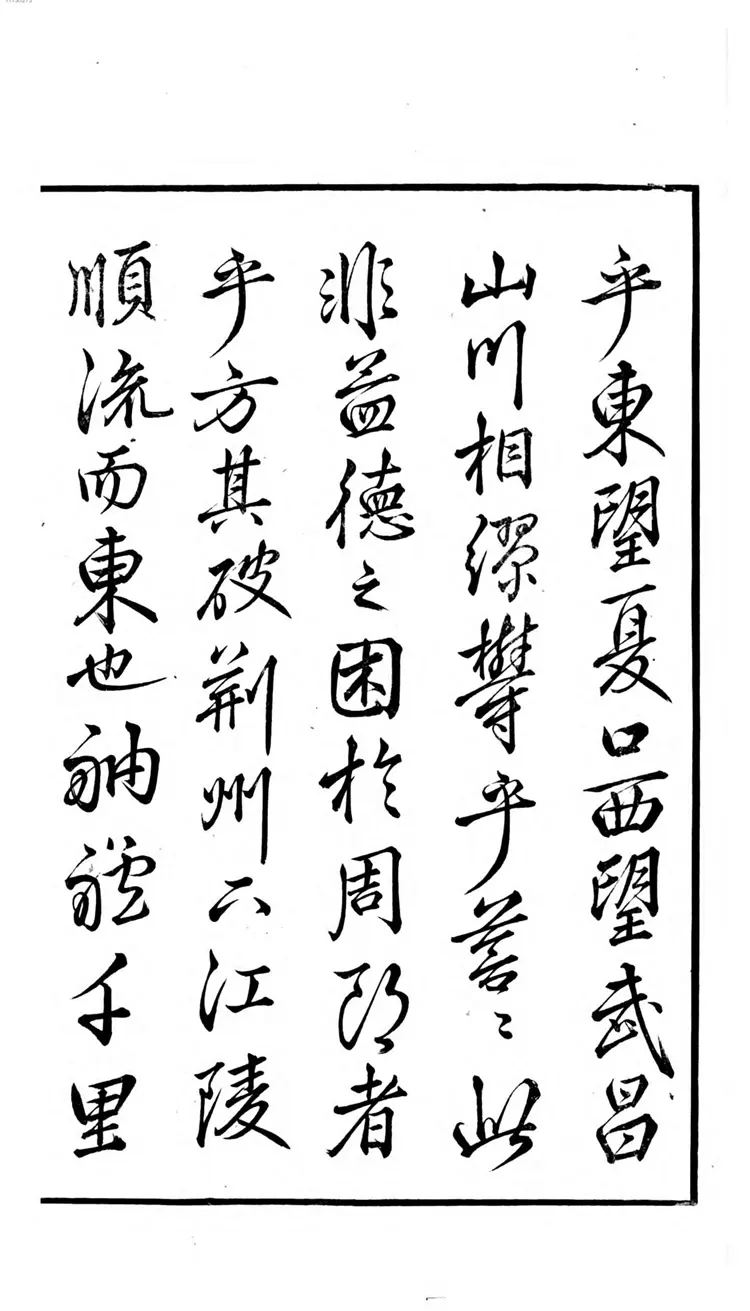 乎東望夏口西望武昌
山川相繆欝乎蒼〻此
非益德之困於周郎者
乎方其破荆州下江陵
順流而東也舳艫千里